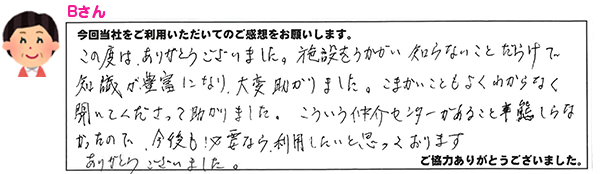 Bさん
今回当社をご利用いただいてのご感想をお願いします。
この度は、ありがとうございました。施設をうかがい知らないことだらけで
知識が豊富になり、大変助かりました。こまかいこともよくわからなく
聞いてくださって助かりました。こういう仲介センターがあること事態しらな
かったので、今後も必要なら、利用したいと思っております
ありがとうございました。
ご協力ありがとうございました。